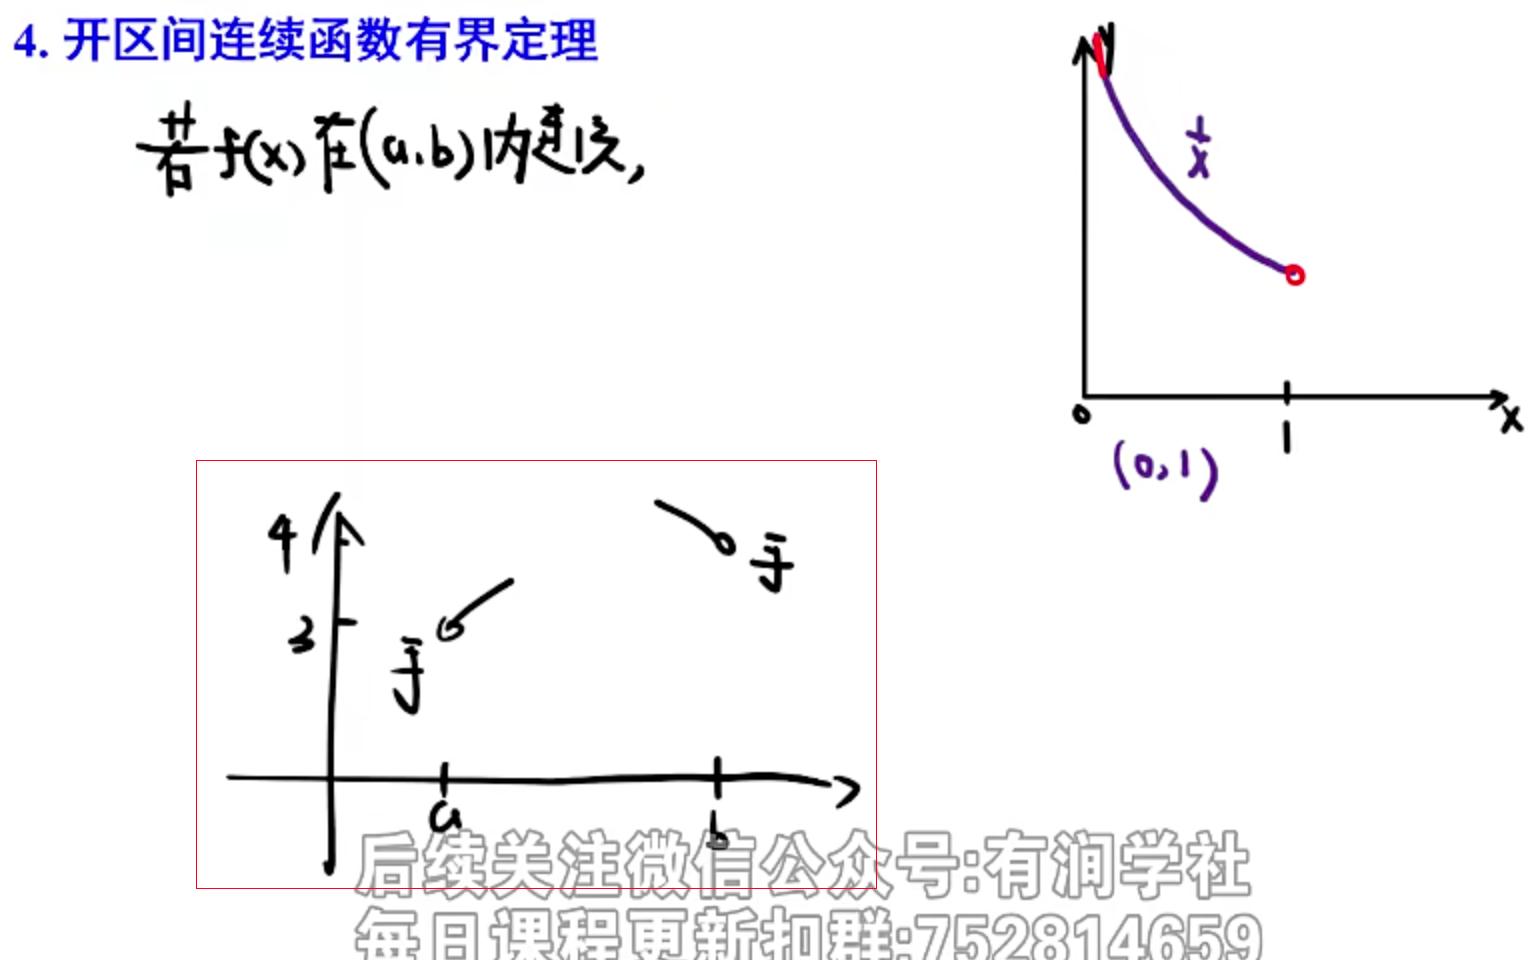 4. 开区间连续函数有界定理
若f(x)在(a,b)内连续,
y
1/x
0
1
x
(0,1)
4
3
a
b
后续关注微信公众号:有润学社
每日课程更新扣群:752814659